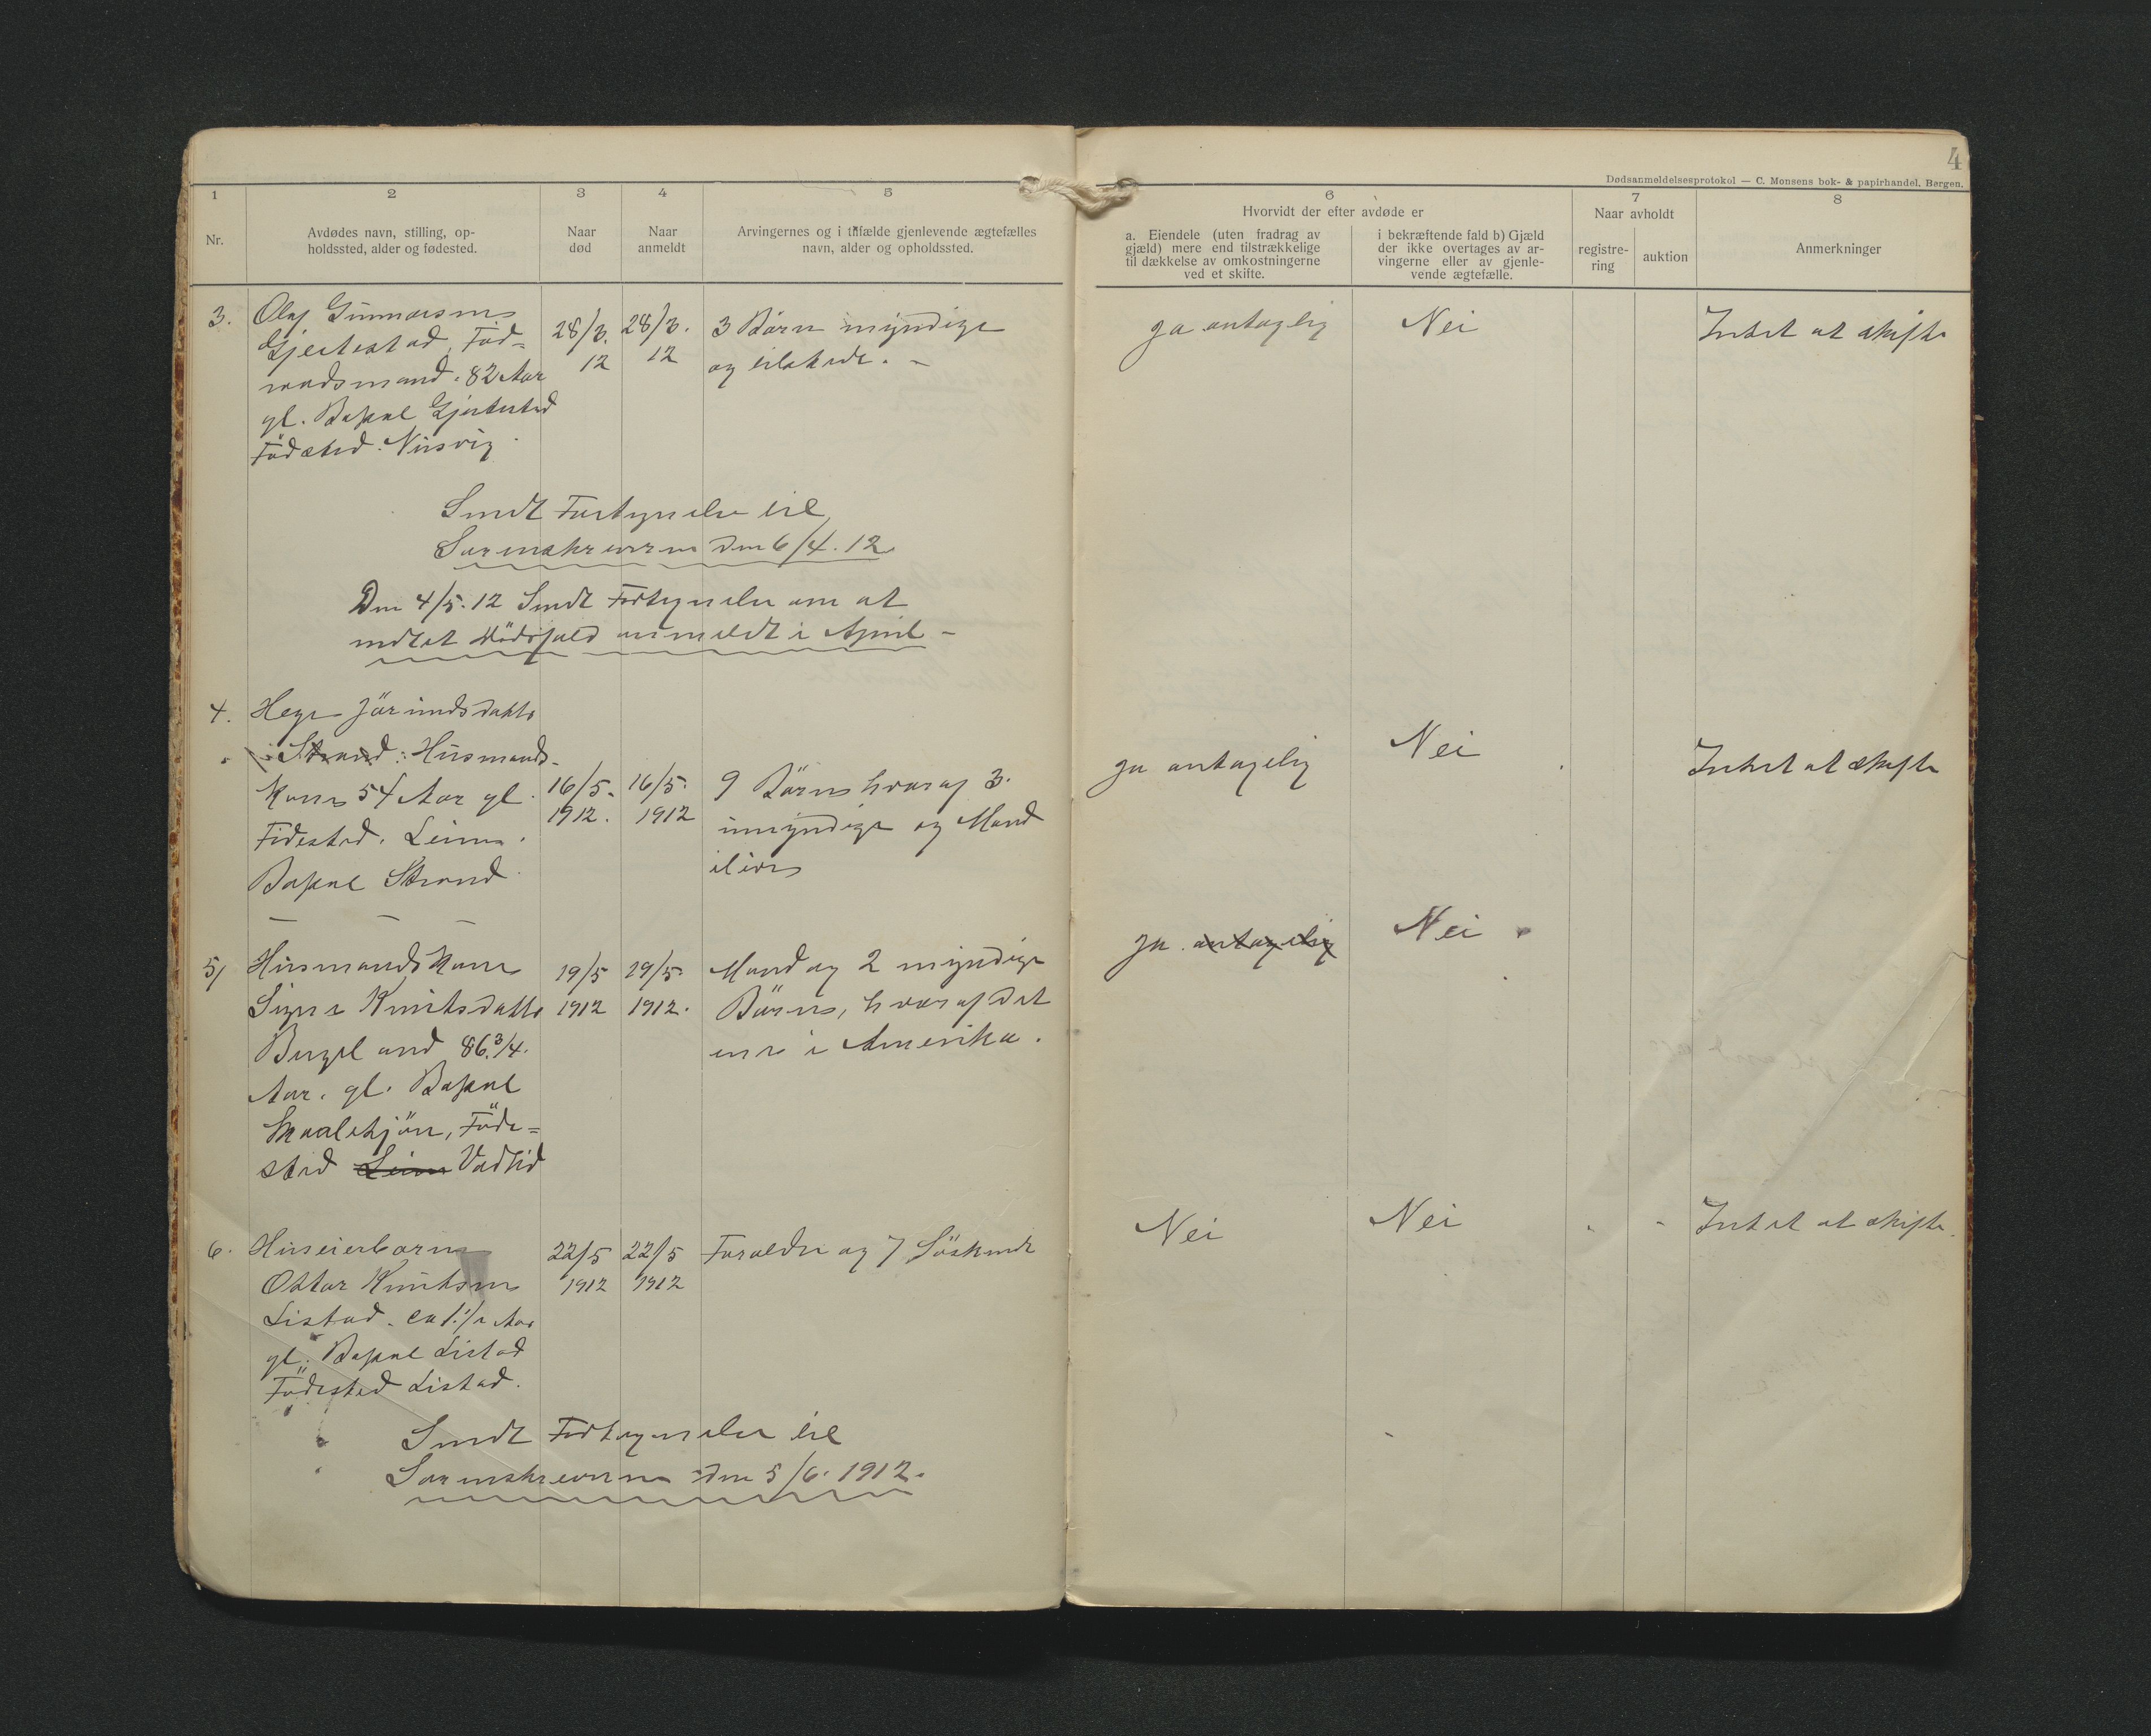 4
Dødsanmeldelsesprotokol — C. Monsens bok- & papirhandel, Bergen.
1
2
3
4
5
6
7
8
Nr.
Avdødes navn, stilling, op-
holdssted, alder og fødested.
Naar
død
Naar
anmeldt
Arvingernes og i tilfælde gjenlevende ægtefælles
navn, alder og opholdssted.
Hvorvidt der efter avdøde er
a. Eiendele (uten fradrag av
gjæld) mere end tilstrækkelige
til dækkelse av omkostningerne
ved et skifte.
i bekræftende fald b) Gjæld
der ikke overtages av ar-
vingerne eller av gjenle-
vende ægtefælle.
Naar avholdt
registre-
ring
auktion
Anmerkninger
3.
Olaf Gunnarsen
Gjertestad, Föd=
raadsmand. 82 Aar
gl. Bopæl Gjertestad
Födested.
28/3.
12
28/3.
12
3 Börn myndige
og
ja antagelig
Nei
Intet at skifte
Sendt Fortegnelse til
Sorenskriveren den 6/4. 12
Den 4/5. 12 Sendt Fortegnelse om at
intet Dödsfald anmeldt i April –
4.
Hege Jörundsdatter
i Strand: Husmands-
Kone 54 Aar gl.
Födested. Leime.
Bopæl Strand
16/5.
1912.
16/5.
1912
9 Börn hvoraf 3.
umyndige og Mand
ilive
ja antagelig
Nei
Intet at skifte
5/
Husmandskone
Signe Knutsdatter
Bergeland 86.3/4.
Aar. gl. Bopæl
Maalestjön, Föde=
sted Leime Vadlid
19/5
1912
19/5.
1912.
Mand og 2 myndige
Börn, hvoraf det
ene i Amerika.
ja antagelig
Nei
6.
Huseierbarn
Ottar Knutsen
Listad. ca 1.1/2 Aar
gl. Bopæl Listad
Födested Listad.
22/5
1912
22/5
1912
Forældre og 7 Söskende
Nei
Nei
Intet at skifte.
Sendt Fortegnelse til
Sorenskriveren den 5/6. 1912.